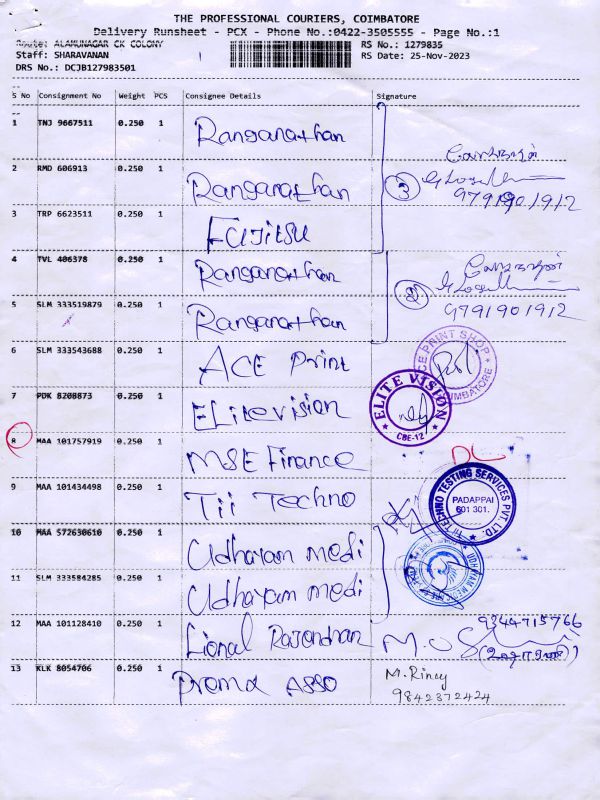 THE PROFESSIONAL COURIERS, COIMBATORE
Delivery Runsheet - PCX - Phone No.:0422-3505555 - Page No.:1
Route: ALAMUNAGAR CK COLONY
RS No.: 1279835
Staff: SHARAVANAN
RS Date: 25-Nov-2023
DRS No.: DCJB127983501
S No Consignment No Weight PCS Consignee Details Signature
1 TNJ 9667511 0.250 1 Ranganathan
2 RMD 606913 0.250 1 Ranganathan
3 9791901912
3 TRP 6623511 0.250 1 FUJITSU
4 TVL 406378 0.250 1 Ranganathan
5 SLM 333519879 0.250 1 Ranganathan
2 9791901912
6 SLM 333543688 0.250 1 ACE Print
ACE PRINT SHOP COIMBATORE
7 PDK 8208873 0.250 1 ELitevision
ELITE VISION CBE-12
8 MAA 101757919 0.250 1 MSE Finance
DL
9 MAA 101434498 0.250 1 Tii Techno
TIII TECHNO TESTING SERVICES PVT. LTD. PADAPPAI 601 301.
10 MAA 572630610 0.250 1 Udhayam medi
11 SLM 333584285 0.250 1 Udhayam medi
UDHAYAM
12 MAA 101128410 0.250 1 Lional Rajendran
9344715766
13 KLK 8054706 0.250 1 Proma ASSO
M. Rincy
9842372424